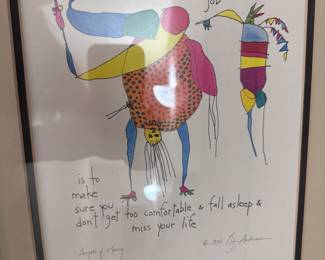 job
is to
make
sure you
don't get too comfortable & fall asleep &
miss your life
Angels of Mercy
© 1994 Brian Andreas